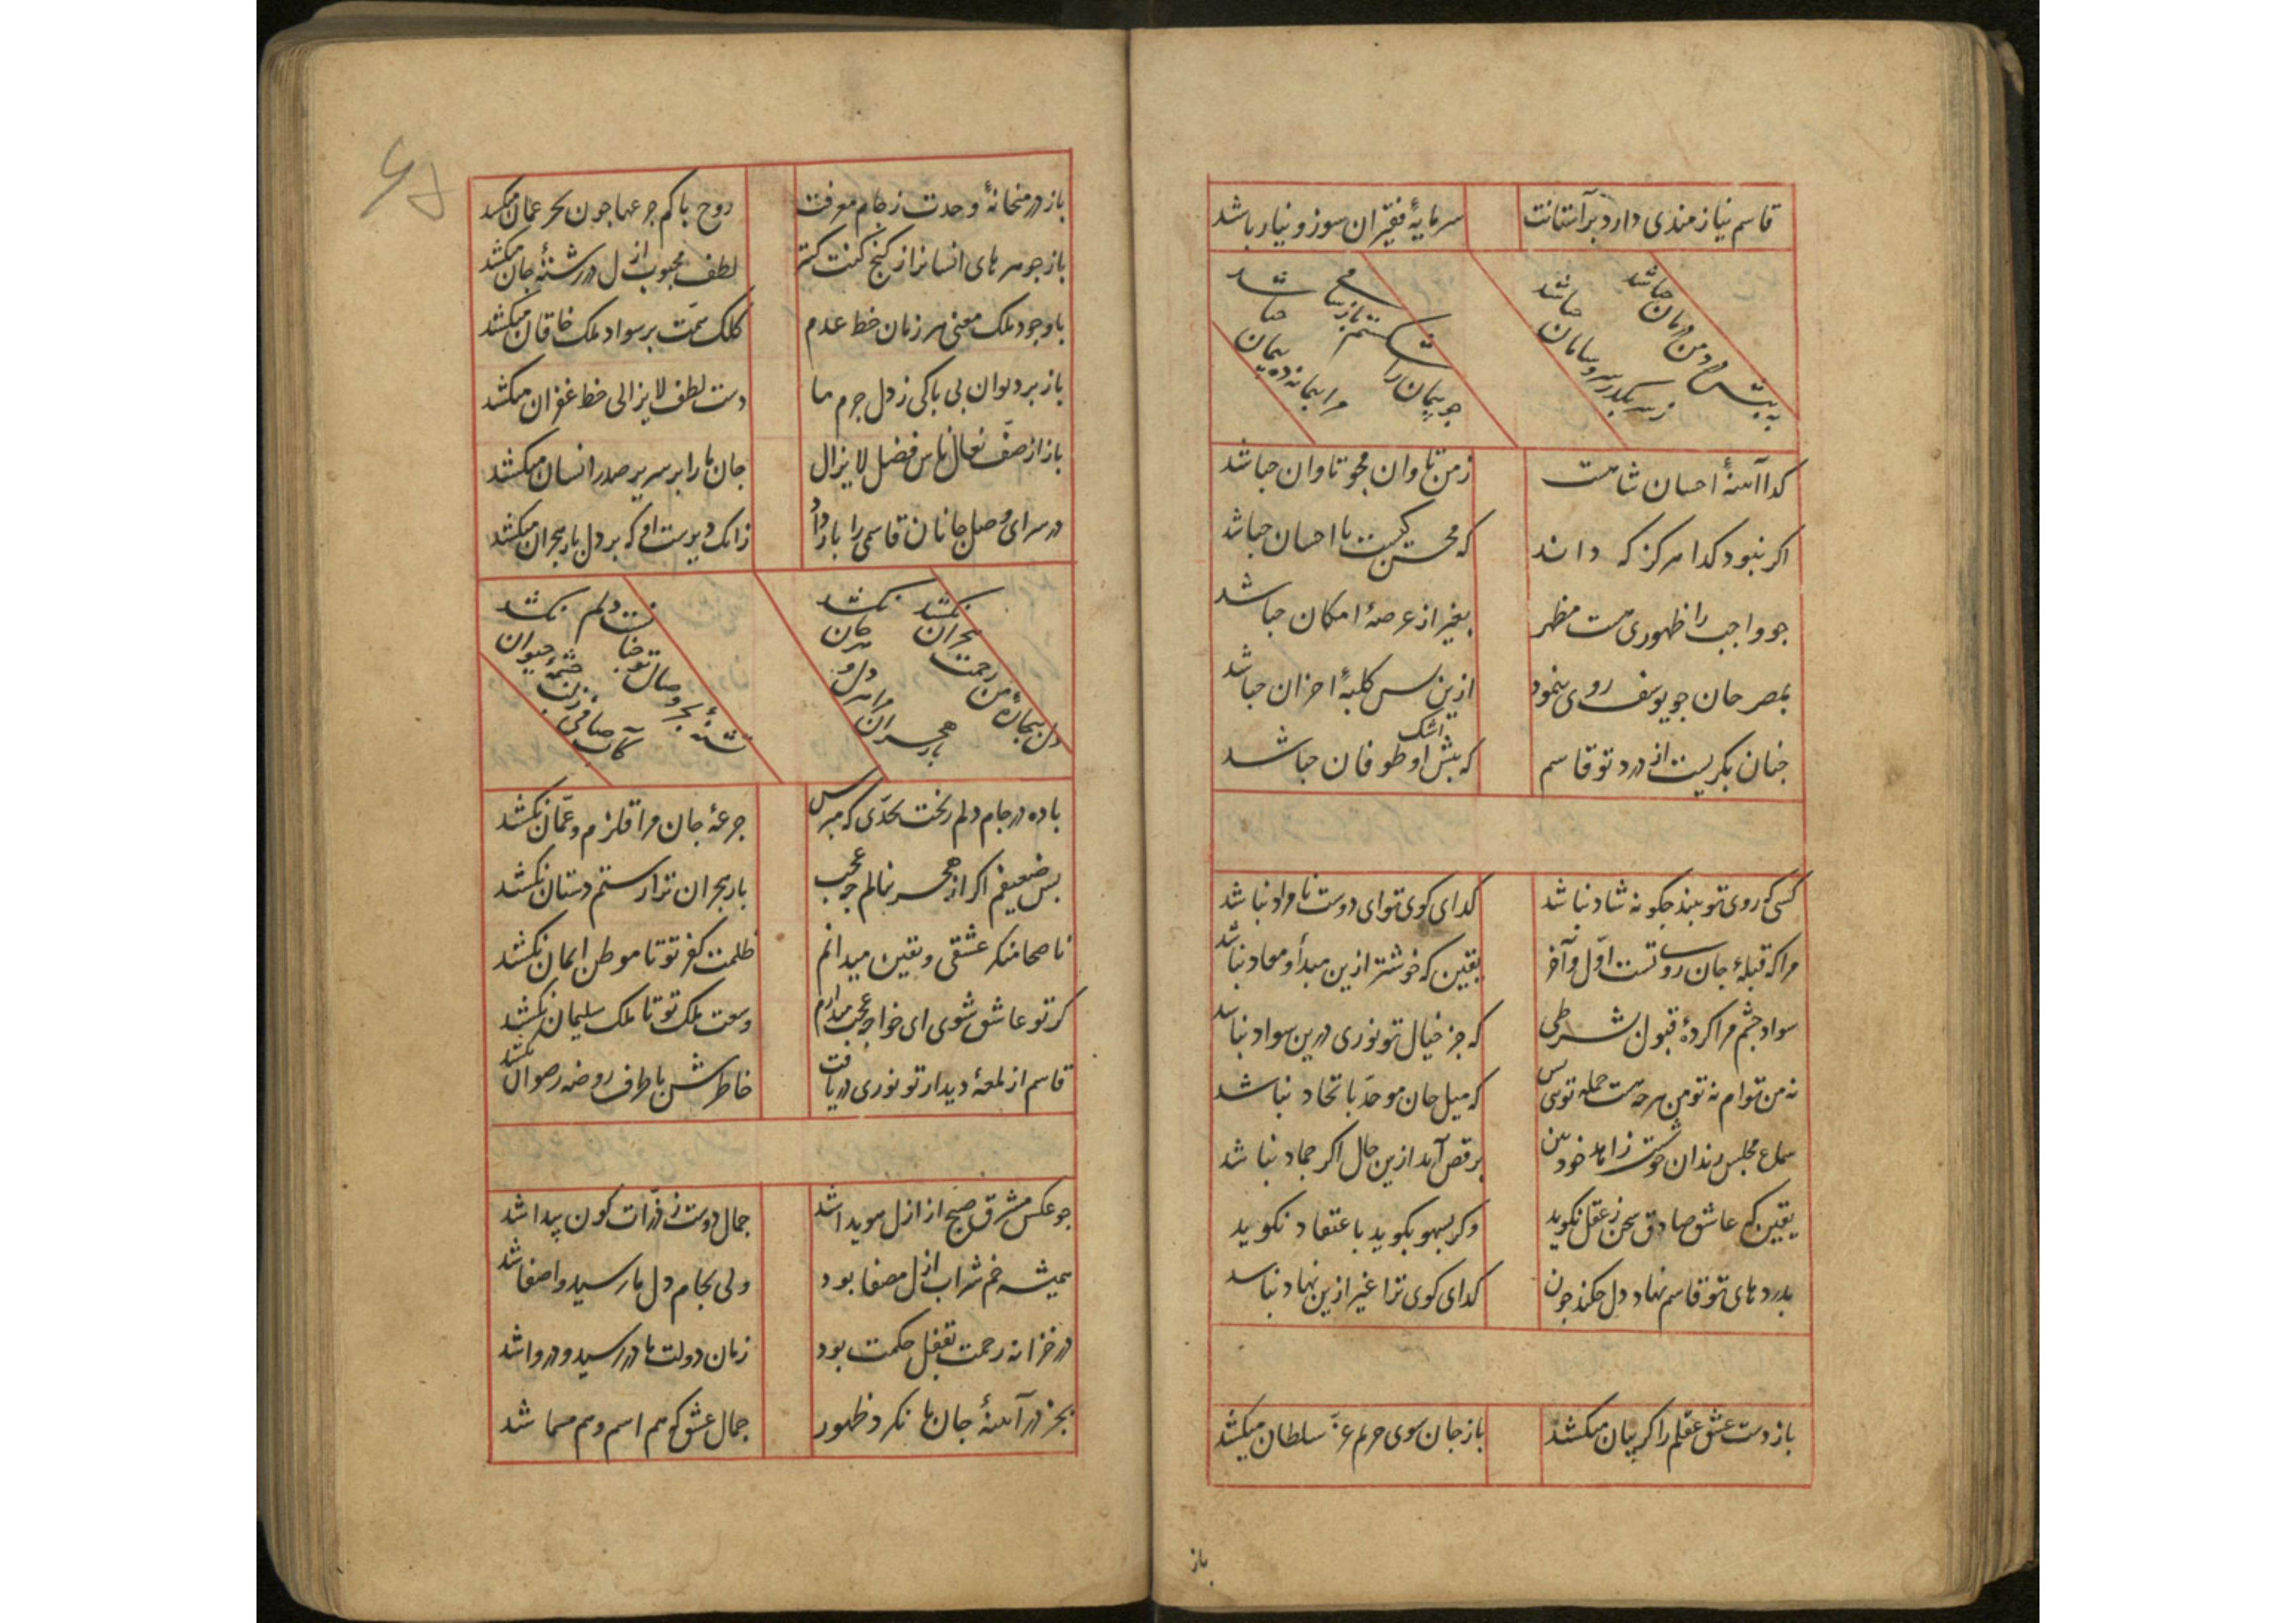 قاسم نیازمندی دارد بر آستانت سرمایهٔ فقیران سوز و نیاز باشد
به پیش درد من درمان چه باشد
ز سر بگذر سر و سامان چه باشد
چو پیمان را شکستم باز
مرا پیمانه ده پیمان چه باشد
کدا آینهٔ احسان شاهست ز من تاوان مجو تاوان چه باشد
اکر نبود کدا هرکز که داند که محسن کیست یا احسان چه باشد
چو واجب را ظهوری هست مظهر بغیر از عرصهٔ امکان چه باشد
بمصر جان چو یوسف روی بنمود ازین پس کلبهٔ احزان چه باشد
چنان بکریست از درد تو قاسم که پیش اشک او طوفان چه باشد
کسی که روی تو بیند چکونه شاد نباشد کدای کوی تو ای دوست نامراد نباشد
مرا که قبلهٔ جان روی تست اول و آخر یقین که خوشتر ازین مبدأ و معاد نباشد
سواد چشم مرا کردهٔ قبول بشرطی که جز خیال تو نوری درین سواد نباشد
نه من توام نه تو من هرچه هست جمله تویی بس که میل جان موحد باتحاد نباشد
سماع مجلس رندان خوشست زاهد خودبین برقص آید ازین حال اکر جماد نباشد
یقین که عاشق صادق سخن ز عقل نکوید وکر بسهو بکوید باعتقاد نکوید
بدردهای تو قاسم نهاد دل چکند چون کدای کوی ترا غیر ازین نهاد نباشد
باز دست عشق عقلم را کریبان میکشد باز جان سوی حریم عز سلطان میکشد
باز
باز در میخانهٔ وحدت ز جام معرفت روح پاکم جرعها چون بحر عمان میکشد
باز جوهرهای انسانرا ز کنج کنت کنز لطف محبوب ازل در رشتهٔ جان میکشد
با وجود ملک معنی هر زمان خط عدم کلک همت بر سواد ملک خاقان میکشد
باز بر دیوان بی باکی ز دل جرم ما دست لطف لایزالی خط غفران میکشد
باز از صف نعال ناس فضل لایزال جان ما را بر سریر صدر انسان میکشد
در سرای وصل جانان قاسمی را باز داد زانک دیرست او که بر دل بار هجران میکشد
دل بیچارهٔ من زحمت هجران نکشد
بار هجران مرا هر دل و هر جان نکشد
تشنهٔ بحر وصال تو چنانست دلم
کآب صافی ز لب چشمهٔ حیوان نکشد
باده در جام دلم ریخت بحدی که مپرس جرعهٔ جان مرا قلزم و عمان نکشد
بس ضعیفم اکر از هجر بنالم چه عجب بار هجران ترا رستم دستان نکشد
ناصحا منکر عشقی و یقین میدانم ظلمت کفر تو تا موطن ایمان نکشد
کر تو عاشق شوی ای خواجه عجب میدارم وسعت ملک تو تا ملک سلیمان نکشد
قاسم از لمعهٔ دیدار تو نوری دریافت خاطرش با طرف روضه رضوان نکشد
چو عکس مشرق صبح از ازل هویدا شد جمال دوست ز ذرات کون پیدا شد
همیشه خم شراب ازل مصفا بود ولی بجام دل ما رسید و اصفا شد
در خزانه رحمت بقفل حکمت بود زمان دولت ما در رسید و در وا شد
بجز در آینهٔ جان ما نکرد ظهور جمال عشق که هم اسم و هم مسما شد